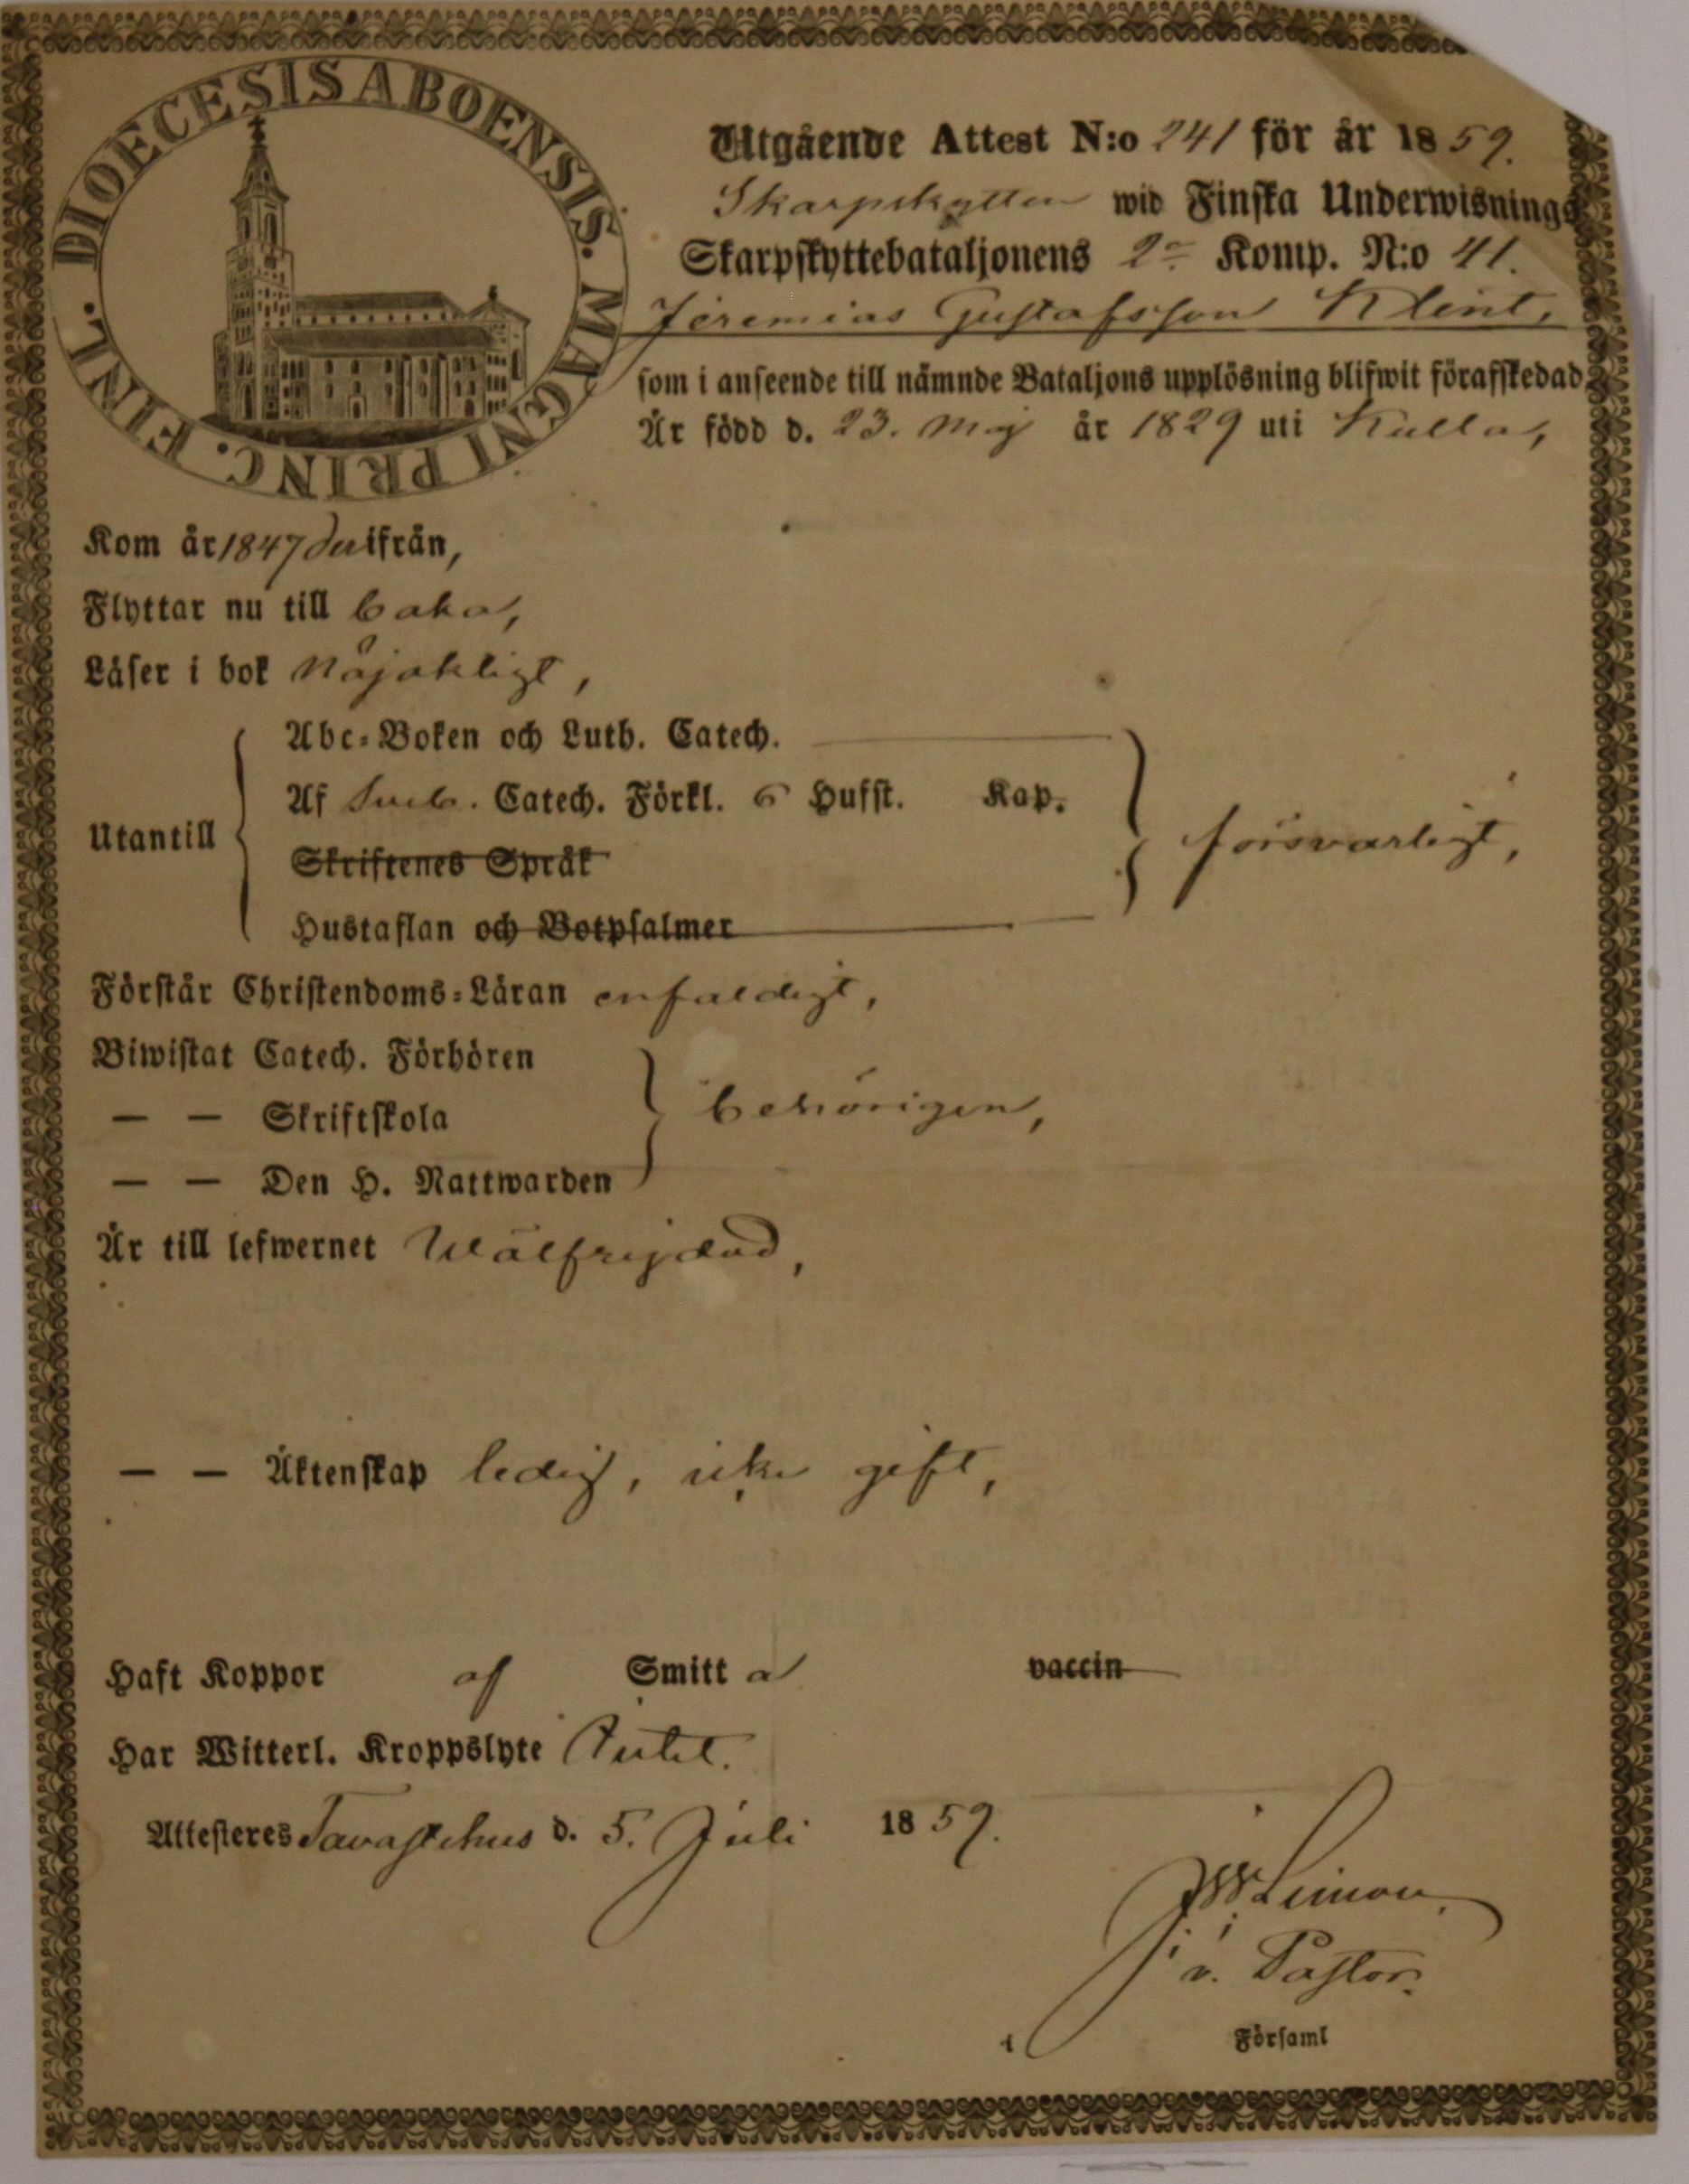 DIOECESIS ABOENSIS. MAGNI PRINC. FINL.
Utgående Attest N:o 241 för år 1859.
Skarpskytten wid Finska Underwisnings
Skarpskyttebataljonens 2a Komp. N:o 41.
Jeremias Gustafsson Klint,
som i anseende till nämnde Bataljons upplösning blifwit förafskedad
Är född d. 23. Maj år 1829 uti Kulla,
Kom år 1847 derifrån,
Flyttar nu till baka,
Läser i bok nöjaktligt,
Abc-Boken och Luth. Catech.
Af Sveb. Catech. Förkl. 6 Hufst. Kap.
Utantill försvarligt,
Skriftenes Språk
Hustaflan och Botpsalmer
Förstår Christendoms-Läran enfaldigt,
Biwistat Catech. Förhören
— — Skriftskola behörigen,
— — Den H. Nattwarden
Är till lefwernet Wälfrejdad,
— — Äktenskap ledig, icke gift,
Haft Koppor af Smitta vaccin
Har Witterl. Kroppslyte Intet.
Attesteres Tavastehus d. 5. Juli 1859.
v. Pastor.
i Församl